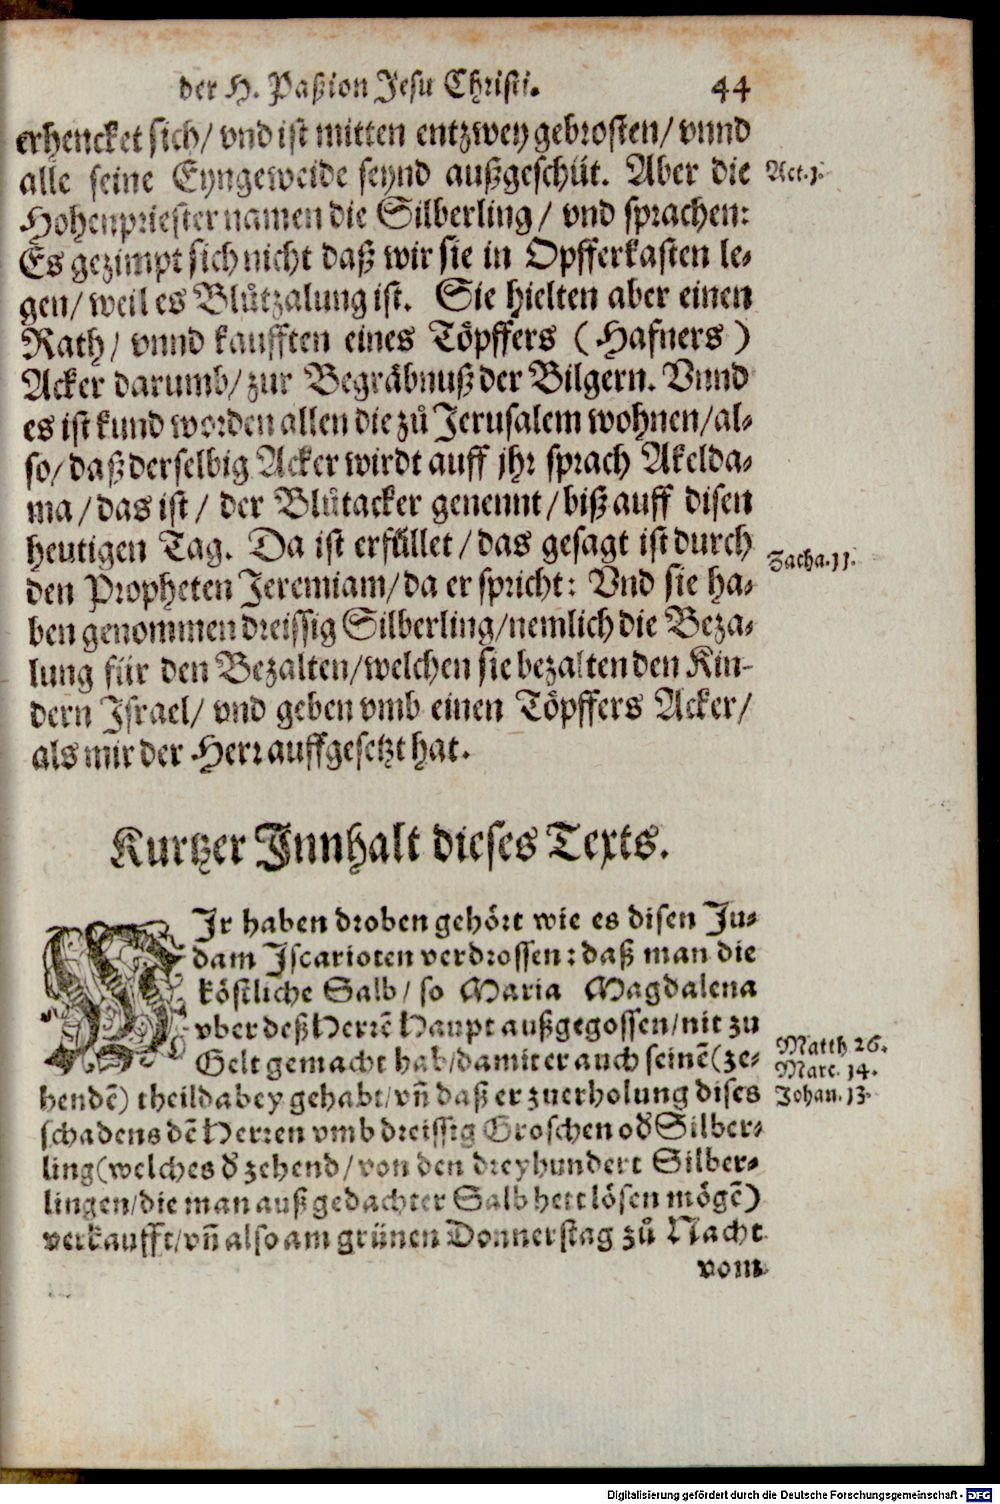 der H. Paßion Jesu Christi. 44
erhencket sich/ vnd ist mitten entzwey gebrosten/ vnnd
alle seine Eyngeweide seynd außgeschüt. Aber die
Act. 1.
Hohenpriester namen die Silberling/ vnd sprachen:
Es gezimpt sich nicht daß wir sie in Opfferkasten le-
gen/ weil es Blůtzalung ist. Sie hielten aber einen
Rath/ vnnd kaufften eines Töpffers (Hafners)
Acker darumb/ zur Begräbnuß der Bilgern. Vnnd
es ist kund worden allen die zů Jerusalem wohnen/ al-
so/ daß derselbig Acker wirdt auff jhr sprach Akelda-
ma/ das ist/ der Blůtacker genennt/ biß auff disen
heutigen Tag. Da ist erfüllet/ das gesagt ist durch
Zacha. 11.
den Propheten Jeremiam/ da er spricht: Vnd sie ha-
ben genommen dreissig Silberling/ nemlich die Beza-
lung für den Bezalten/ welchen sie bezalten den Kin-
dern Israel/ vnd geben vmb einen Töpffers Acker/
als mir der Herr auffgesetzt hat.
Kurtzer Jnnhalt dieses Texts.
WJr haben droben gehört wie es disen Ju-
dam Iscarioten verdrossen: daß man die
köstliche Salb/ so Maria Magdalena
vber deß Herrē Haupt außgegossen/ nit zu
Gelt gemacht hab/ damit er auch seinē (ze-
hendē) theil dabey gehabt/ vñ daß er zuerholung dises
Matth. 26.
Marc. 14.
Johan. 13.
schadens dē Herren vmb dreissig Groschen od' Silber-
ling (welches d' zehend/ von den dreyhundert Silber-
lingen/ die man auß gedachter Salb hett lösen mögē)
verkaufft/ vñ also am grünen Donnerstag zů Nacht
vom
Digitalisierung gefördert durch die Deutsche Forschungsgemeinschaft - DFG